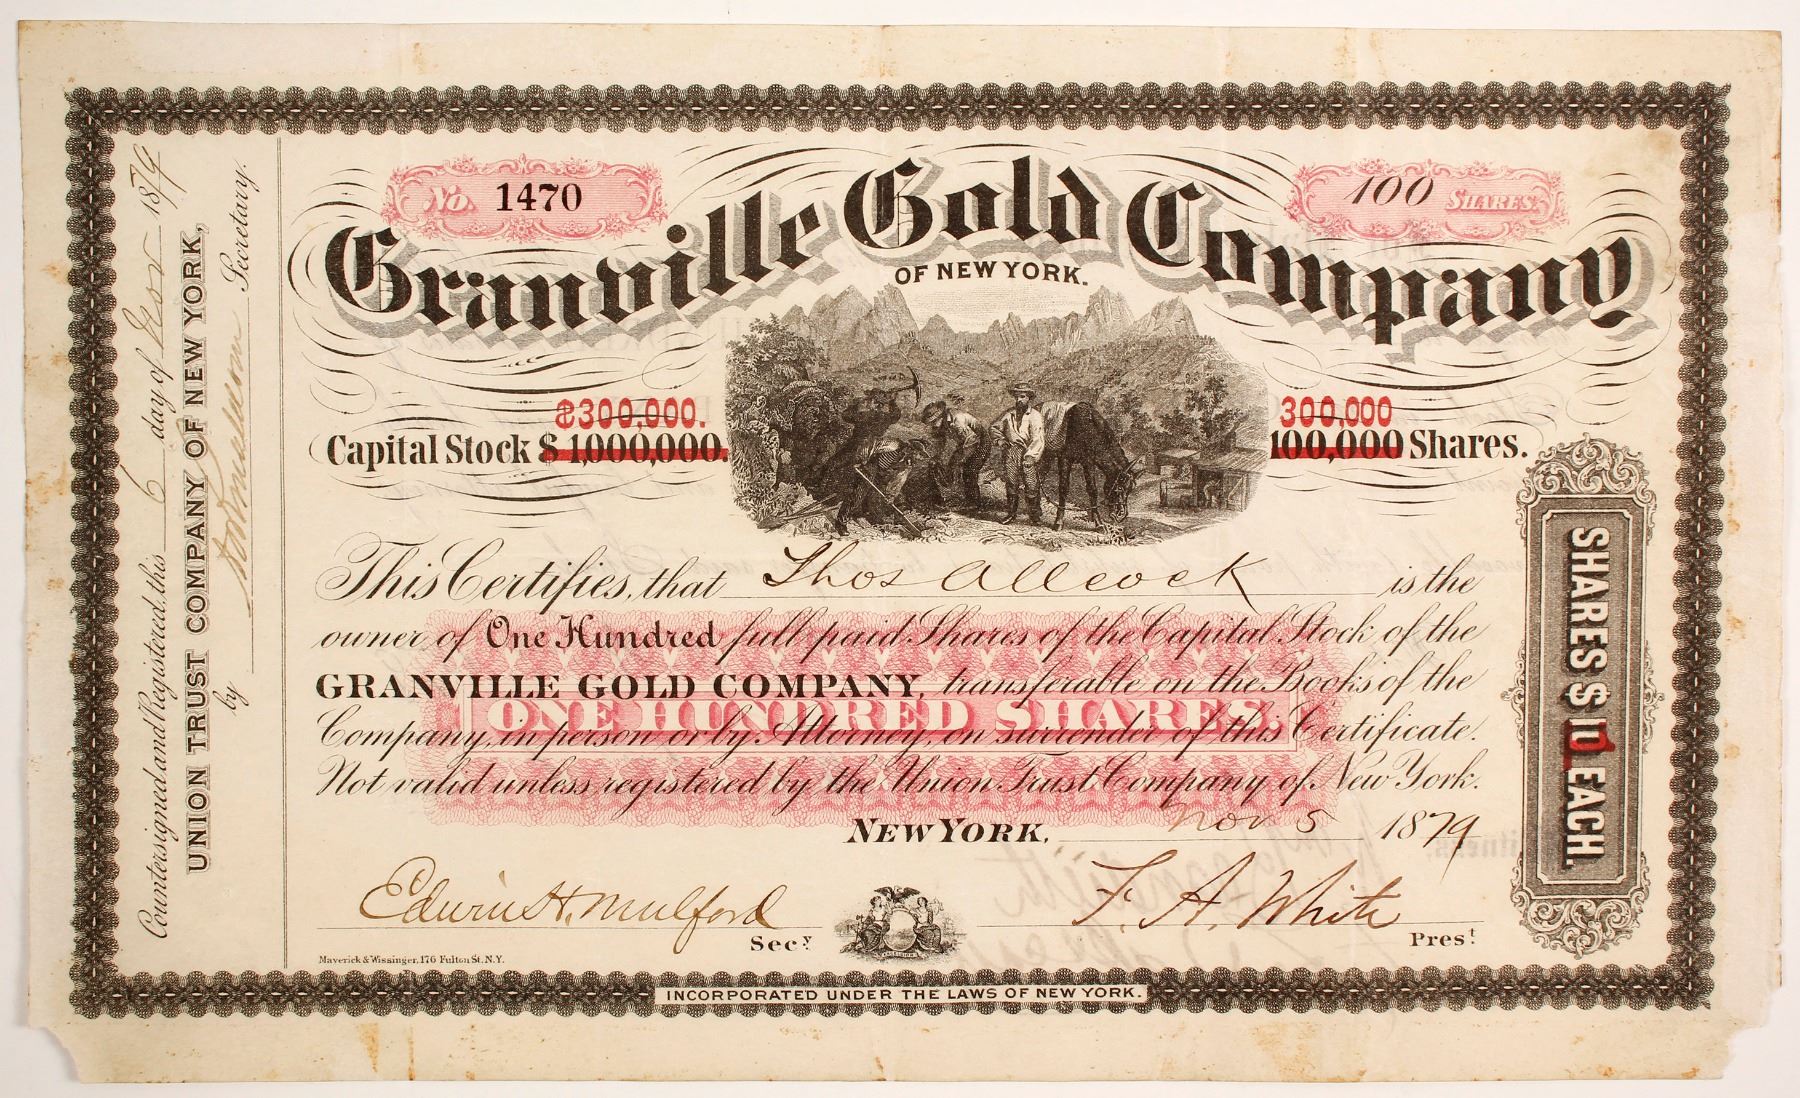 No. 1470
100 SHARES.
Granville Gold Company
OF NEW YORK.
$300,000.
300,000
Capital Stock $1,000,000.
100,000 Shares.
This Certifies, that Thos Allcock is the
owner of One Hundred full paid Shares of the Capital Stock of the
GRANVILLE GOLD COMPANY, transferable on the Books of the
ONE HUNDRED SHARES.
Company, in person or by Attorney, on surrender of this Certificate.
Not valid unless registered by the Union Trust Company of New York.
NEW YORK, Nov 5 1879
Edwin H. Mulford Secy.
F. A. White Prest.
Maverick & Wissinger, 176 Fulton St. N.Y.
INCORPORATED UNDER THE LAWS OF NEW YORK.
Countersigned and Registered, this 6 day of Nov 1879
UNION TRUST COMPANY OF NEW YORK,
by Secretary.
SHARES $10 EACH.